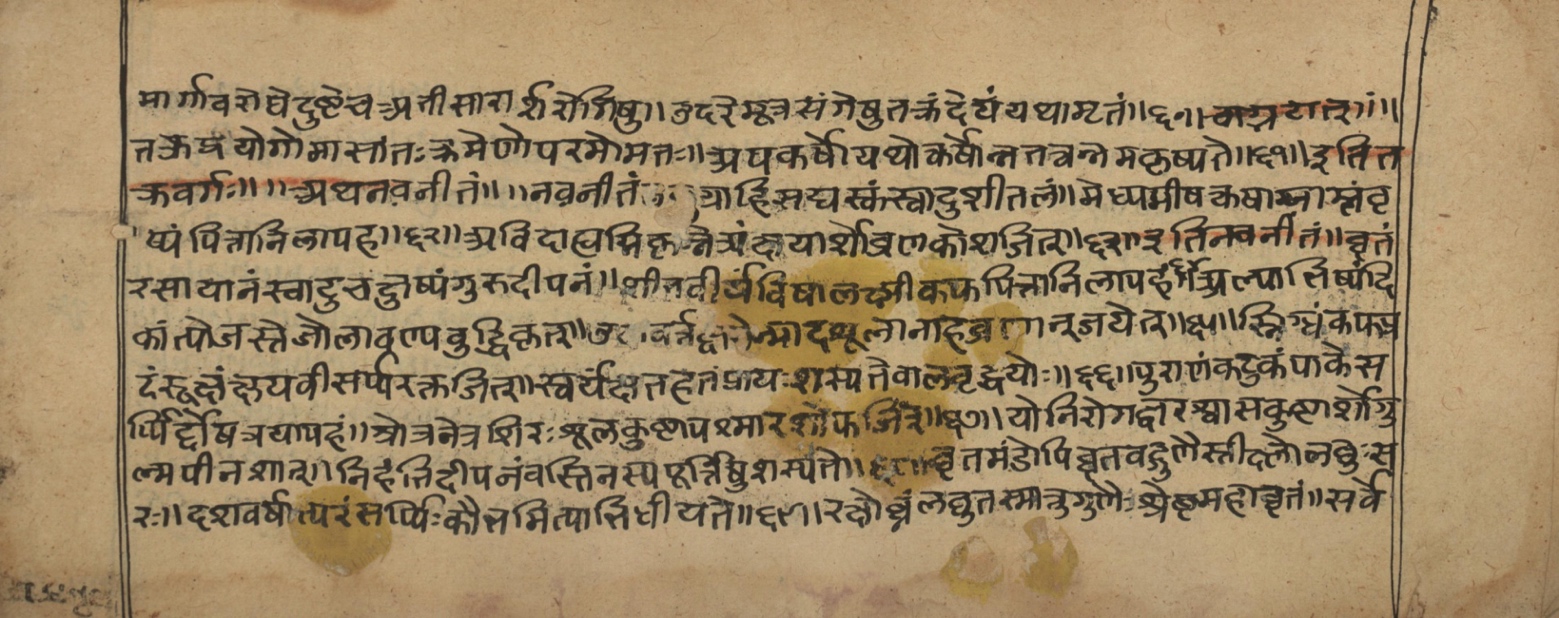 मार्गावरोधेदुष्टेचअतीसारार्शरोगिषु॥उदरेमूत्रसंगेषुतक्रंदेयंयथामृतं॥६१॥
तक्रप्रयोगोमासांतःक्रमेणोपरमोमतः॥अपकर्षोयथोत्कर्षोन्न॥६१॥इतित
क्रवर्गः॥॥अथनवनीतं॥॥नवनीतं ग्राहिसद्यस्कंस्वादुशीतलं॥मेध्यमीषत्कषायाम्लंवृ
ष्यंपित्तानिलापह॥६२॥अविदाह्यग्निकृन्नेत्र्यंक्षयार्शोव्रणकोशजित्॥६३॥इतिनवनीतं॥घृतं
रसायानंस्वादुचक्षुष्यंगुरुदीपनं॥शीतवीर्यंविषालक्ष्मीकफपित्तानिलापहं॥अल्पाभिष्यंदि
कांत्योजस्तेजोलावण्यबुद्धिकृत्॥उन्मादशूलानाहव्रणान्जयेत्॥स्निग्धंकफप्र
दंरूक्षंक्षयवीसर्प्परक्तजित्॥स्वर्यंक्षतहतंप्रायःशस्यतेवालवृद्धयोः॥६६॥पुराणंकटुकंपाकेस
र्प्पिर्द्दोषत्रयापहं॥श्रोत्रनेत्रशिरःशूलकुष्ठापश्मारशोफजित्॥६७॥योनिरोगद्वारश्वासकुष्ठार्शोगु
ल्मपीनशात्॥निहंतिदीपनंवस्तिनस्यपूर्त्तिषुशस्यते॥घृतमंडोपिघृतवद्गुणैस्तीक्ष्णोलघुःस
रः॥दशवर्षात्परंसर्प्पिःकौंत्तमित्यात्तिधीयते॥६९॥रक्षोघ्नंलघुतस्मात्तुगुणैःश्रेष्ठमहाघृतं॥सर्वे